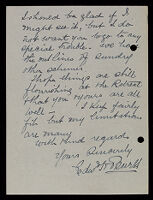 I should be glad if I
might see it, but I do
not want you to go to any
special trouble. We have
the outlines of sundry
other schemes.
I hope things are still
flourishing at the Retreat
& that you & yours are all
well. I keep fairly
fit but my limitations
are many
With kind regards
Yours Sincerely